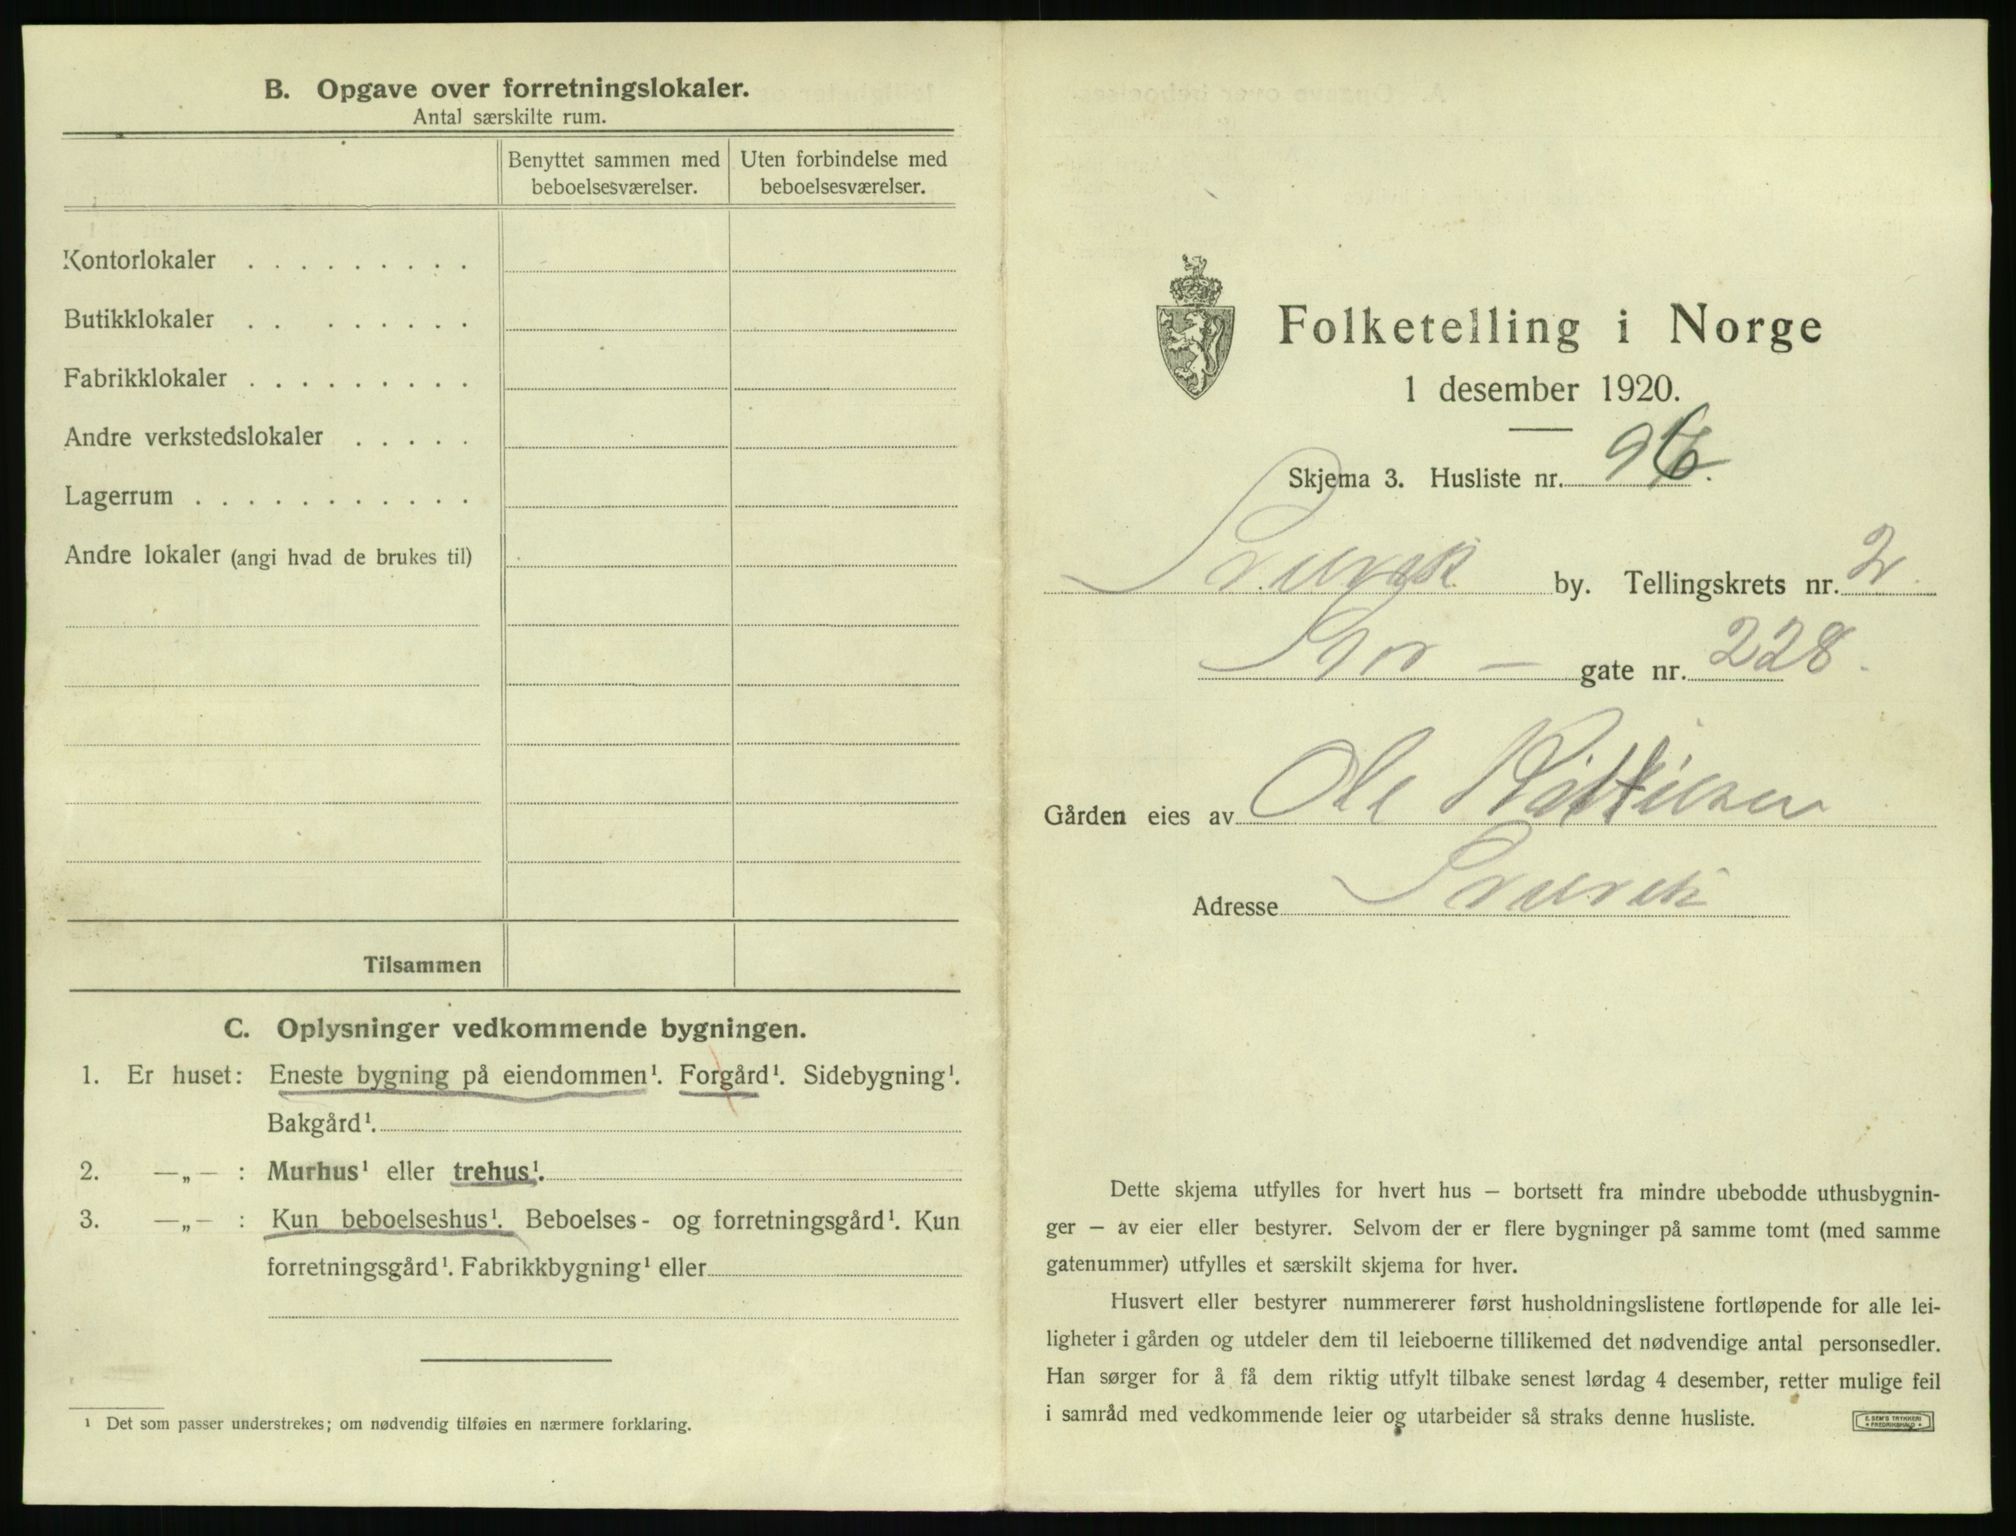 B. Opgave over forretningslokaler.
Antal særskilte rum.
Benyttet sammen med beboelsesværelser.
Uten forbindelse med beboelsesværelser.
Kontorlokaler . . . . . . . . .
Butikklokaler . . . . . . . .
Fabrikklokaler . . . . . . . . .
Andre verkstedslokaler . . . . .
Lagerrum . . . . . . . . . . .
Andre lokaler (angi hvad de brukes til)
Tilsammen
C. Oplysninger vedkommende bygningen.
1. Er huset: Eneste bygning på eiendommen¹. Forgård¹. Sidebygning¹.
Bakgård¹.
2. —„— : Murhus¹ eller trehus¹.
3. —„— : Kun beboelseshus¹. Beboelses- og forretningsgård¹. Kun
forretningsgård¹. Fabrikkbygning¹ eller
¹ Det som passer understrekes; om nødvendig tilføies en nærmere forklaring.
Folketelling i Norge
1 desember 1920.
Skjema 3. Husliste nr. 96.
by. Tellingskrets nr. 2.
Stor — gate nr. 228.
Gården eies av Ole Kittilsen
Adresse
Dette skjema utfylles for hvert hus – bortsett fra mindre ubebodde uthusbygnin-
ger – av eier eller bestyrer. Selvom der er flere bygninger på samme tomt (med samme
gatenummer) utfylles et særskilt skjema for hver.
Husvert eller bestyrer nummererer først husholdningslistene fortløpende for alle lei-
ligheter i gården og utdeler dem til leieboerne tillikemed det nødvendige antal personsedler.
Han sørger for å få dem riktig utfylt tilbake senest lørdag 4 desember, retter mulige feil
i samråd med vedkommende leier og utarbeider så straks denne husliste.
E. SEM'S TRYKKERI
• FREDRIKSHALD •